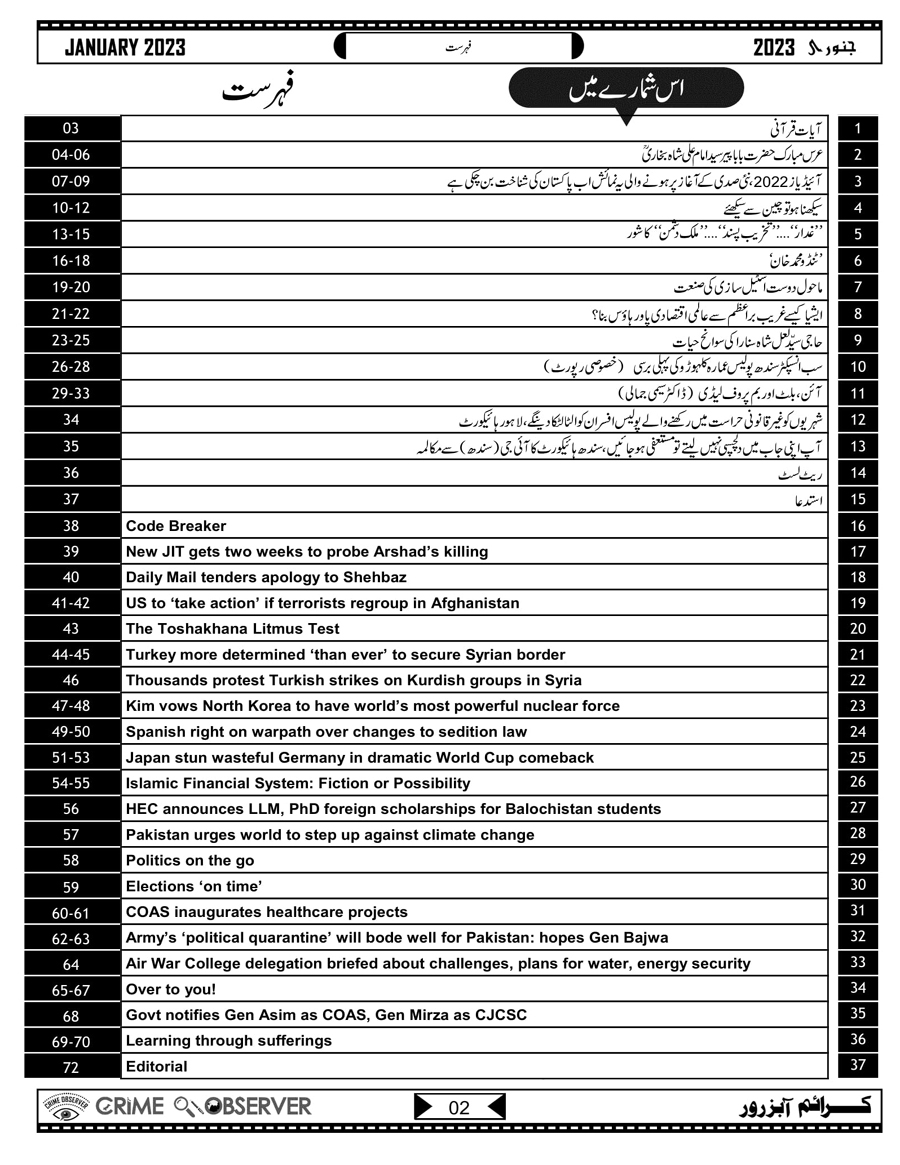 JANUARY 2023 فہرست جنوری 2023
فہرست اس شمارے میں
03 آیات قرآنی 1
04-06 عرس مبارک حضرت بابا پیر سید امام علی شاہ بخاریؒ 2
07-09 آئیڈیاز 2022، نئی صدی کے آغاز پر ہونے والی یہ نمائش اب پاکستان کی شناخت بن چکی ہے 3
10-12 سیکھنا ہو تو چین سے سیکھئے 4
13-15 ’’غدار‘‘....’’تخریب پسند‘‘....’’ملک دشمن‘‘ کا شور 5
16-18 ’ٹنڈو محمد خان‘ 6
19-20 ماحول دوست اسٹیل سازی کی صنعت 7
21-22 ایشیا کیسے غریب براعظم سے عالمی اقتصادی پاور ہاؤس بنا؟ 8
23-25 حاجی سیّد لعل شاہ سنارا کی سوانح حیات 9
26-28 سب انسپکٹر سندھ پولیس عمارہ کلہوڑو کی پہلی برسی (خصوصی رپورٹ) 10
29-33 آئن، بلٹ اور بم پروف لیڈی (ڈاکٹر سیمی جمالی) 11
34 شہریوں کو غیر قانونی حراست میں رکھنے والے پولیس افسران کو الٹا لٹکا دینگے، لاہور ہائیکورٹ 12
35 آپ اپنی جاب میں دلچسپی نہیں لیتے تو مستعفی ہو جائیں، سندھ ہائیکورٹ کا آئی جی (سندھ) سے مکالمہ 13
36 ریٹ لسٹ 14
37 استدعا 15
38 Code Breaker 16
39 New JIT gets two weeks to probe Arshad’s killing 17
40 Daily Mail tenders apology to Shehbaz 18
41-42 US to ‘take action’ if terrorists regroup in Afghanistan 19
43 The Toshakhana Litmus Test 20
44-45 Turkey more determined ‘than ever’ to secure Syrian border 21
46 Thousands protest Turkish strikes on Kurdish groups in Syria 22
47-48 Kim vows North Korea to have world’s most powerful nuclear force 23
49-50 Spanish right on warpath over changes to sedition law 24
51-53 Japan stun wasteful Germany in dramatic World Cup comeback 25
54-55 Islamic Financial System: Fiction or Possibility 26
56 HEC announces LLM, PhD foreign scholarships for Balochistan students 27
57 Pakistan urges world to step up against climate change 28
58 Politics on the go 29
59 Elections ‘on time’ 30
60-61 COAS inaugurates healthcare projects 31
62-63 Army’s ‘political quarantine’ will bode well for Pakistan: hopes Gen Bajwa 32
64 Air War College delegation briefed about challenges, plans for water, energy security 33
65-67 Over to you! 34
68 Govt notifies Gen Asim as COAS, Gen Mirza as CJCSC 35
69-70 Learning through sufferings 36
72 Editorial 37
CRIME OBSERVER CRIME OBSERVER 02 کرائم آبزرور